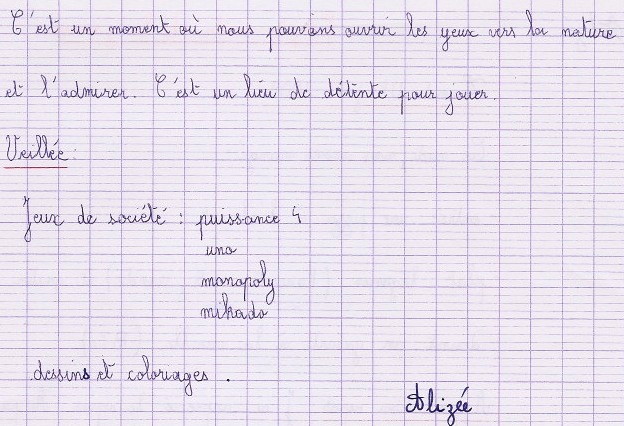 C'est un moment où nous pouvons ouvrir les yeux vers la nature
et l'admirer. C'est un lieu de détente pour jouer.
Veillée :
Jeux de société : puissance 4
uno
monopoly
mikado
dessins et coloriages .
Alizée